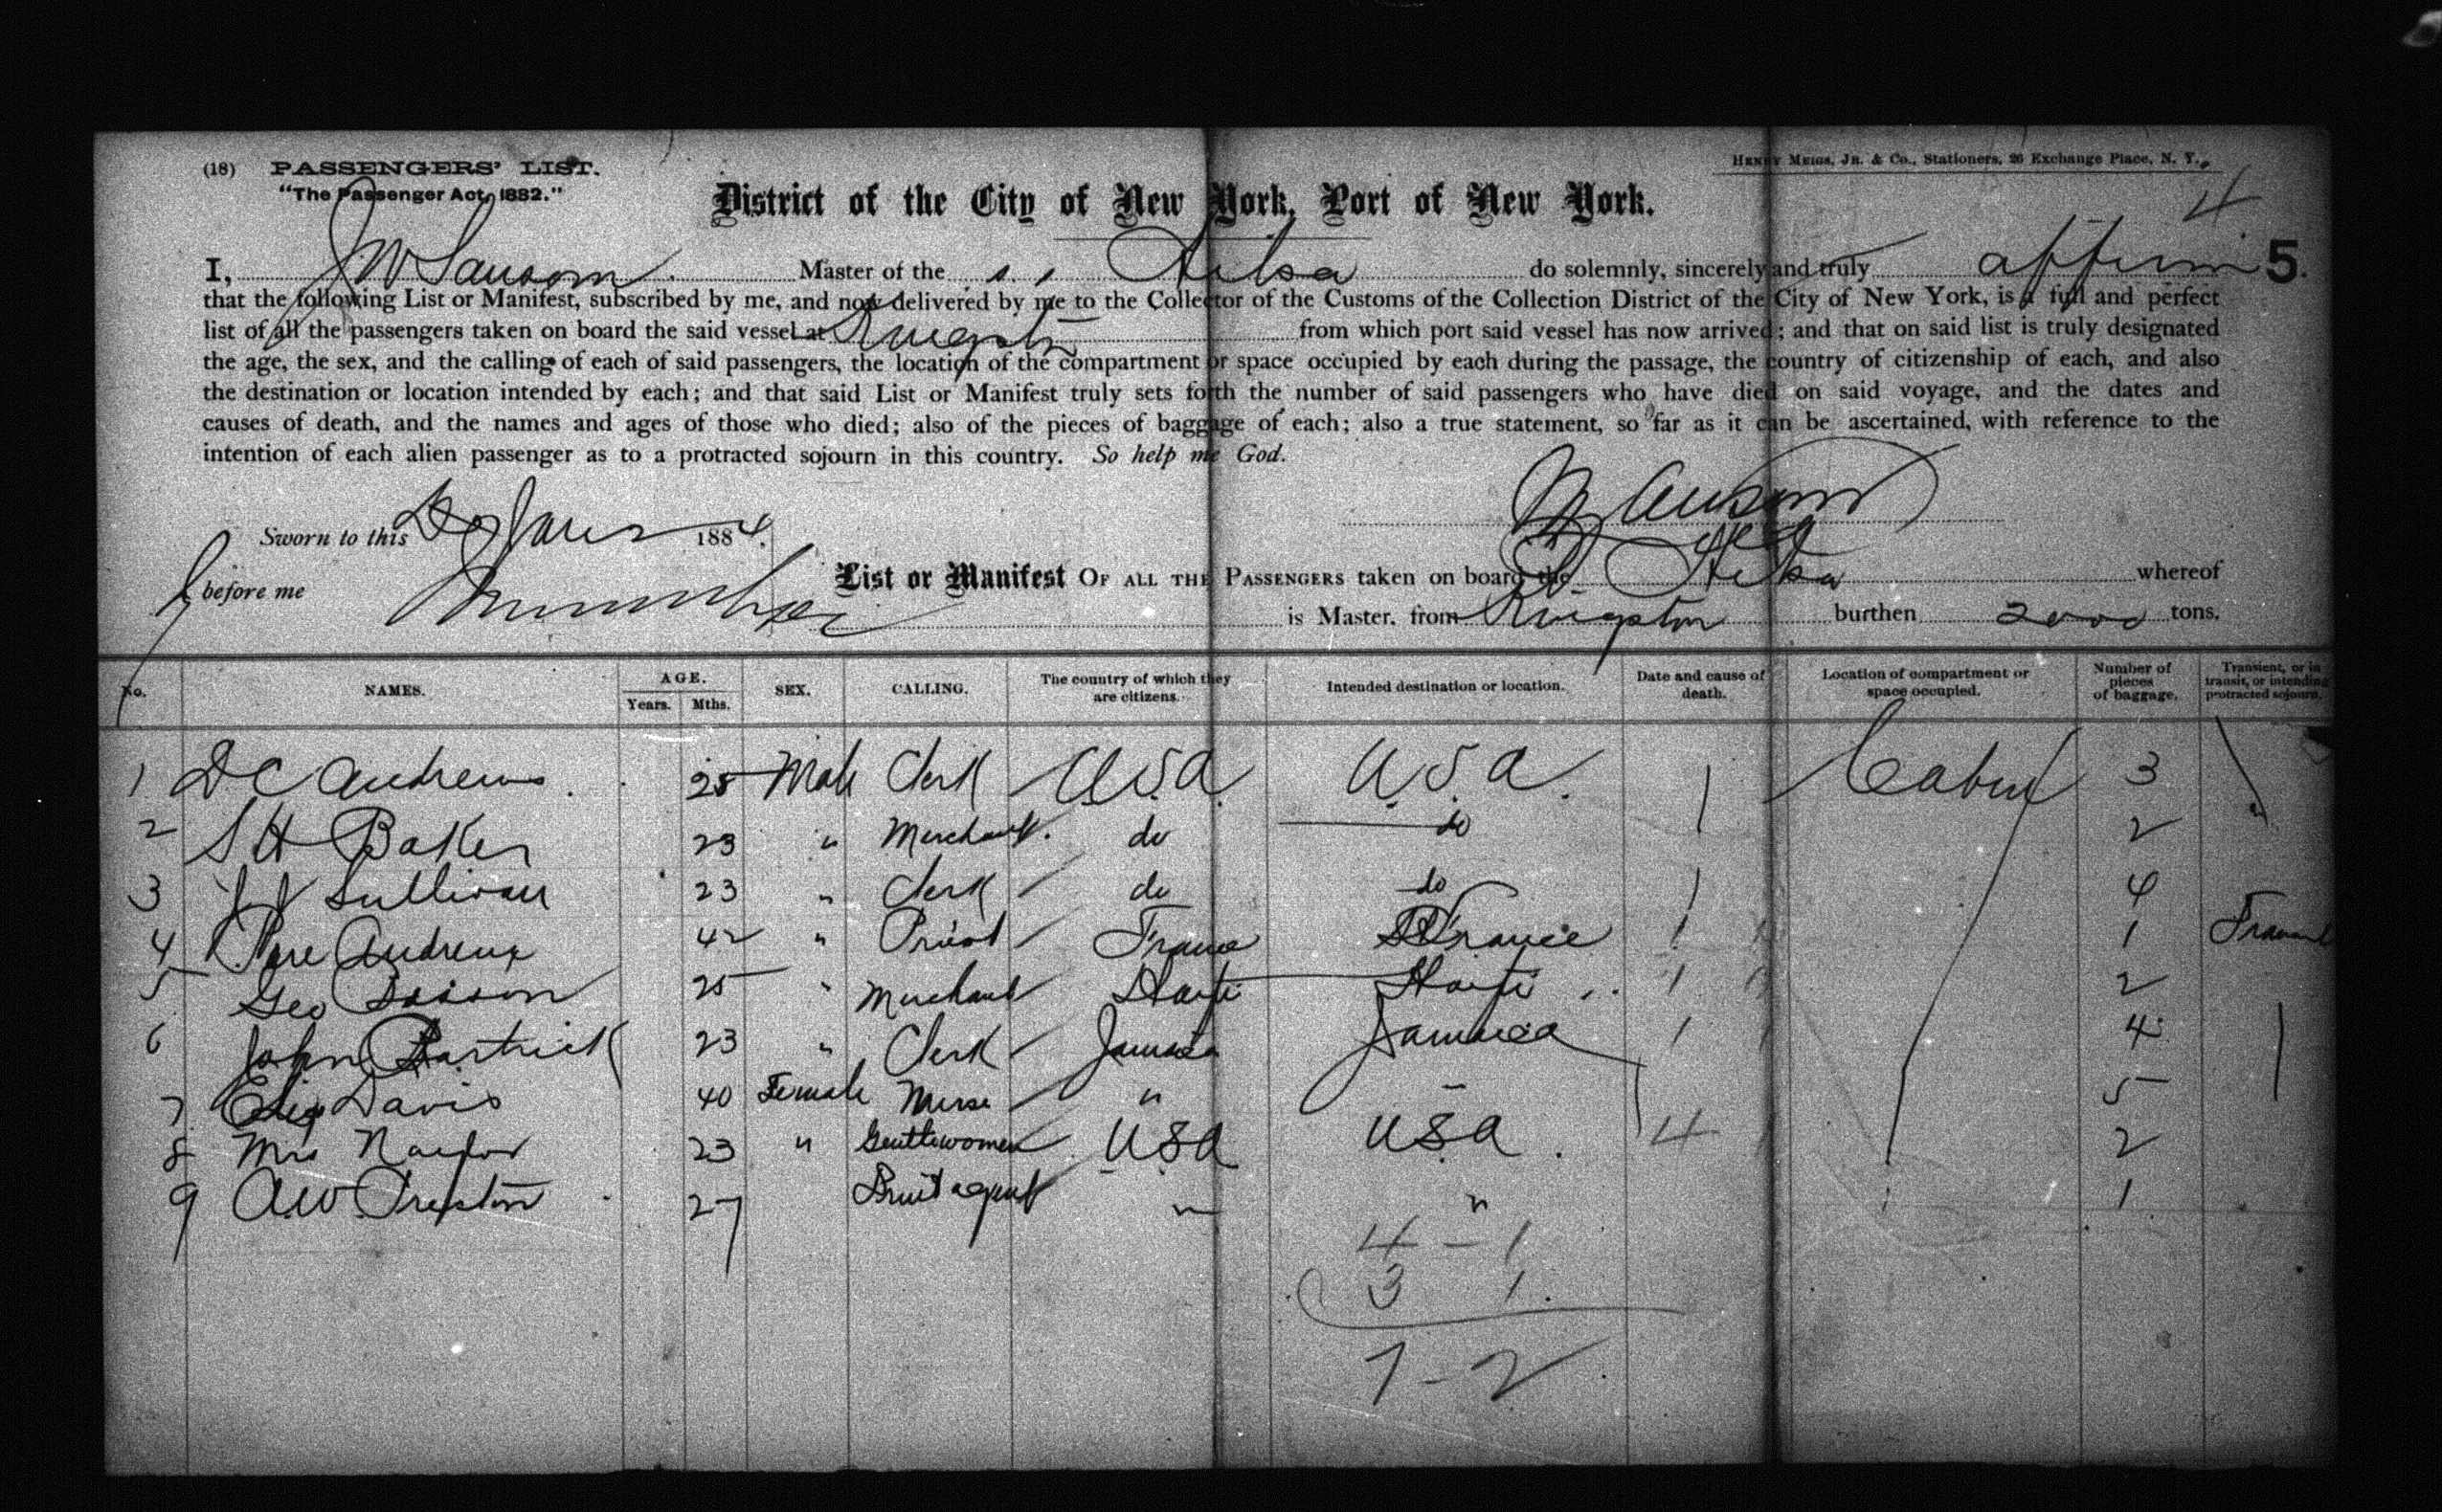 (18) PASSENGERS' LIST.
"The Passenger Act, 1882."
HENRY MEIGS, JR. & CO., STATIONERS, 26 EXCHANGE PLACE, N. Y.
4
District of the City of New York, Port of New York.
I, J W Sansom Master of the s. s. Ailsa do solemnly, sincerely and truly affirm 5.
that the following List or Manifest, subscribed by me, and now delivered by me to the Collector of the Customs of the Collection District of the City of New York, is a full and perfect
list of all the passengers taken on board the said vessel at Kingston from which port said vessel has now arrived; and that on said list is truly designated
the age, the sex, and the calling of each of said passengers, the location of the compartment or space occupied by each during the passage, the country of citizenship of each, and also
the destination or location intended by each; and that said List or Manifest truly sets forth the number of said passengers who have died on said voyage, and the dates and
causes of death, and the names and ages of those who died; also of the pieces of baggage of each; also a true statement, so far as it can be ascertained, with reference to the
intention of each alien passenger as to a protracted sojourn in this country. So help me God.
Sworn to this 1884.
before me
List or Manifest OF ALL THE PASSENGERS taken on board the Ailsa whereof
is Master, from Kingston burthen 2000 tons.
No. NAMES. AGE. Years. Mths. SEX. CALLING. The country of which they are citizens. Intended destination or location. Date and cause of death. Location of compartment or space occupied. Number of pieces of baggage. Transient, or in transit, or intending protracted sojourn.
1 D C Andrews 25 Male Clerk USA U.S.A. Cabin 3
2 S H Baker 23 " Merchant. do do 2
3 J J Sullivan 23 " Clerk do do 4
4 Pere Andreux 42 " Priest France France 1
5 Geo 25 " Merchant Haiti Haiti 2
6 John Partrick 23 " Clerk Jamaica Jamaica 4
7 Davis 40 Female Nurse " " 5
8 Mrs Naylor 23 " Gentlewomen USA USA 4 2
9 A.W. Preston 27 Fruit agent " " 1
4 - 1
3 1.
7 - 2